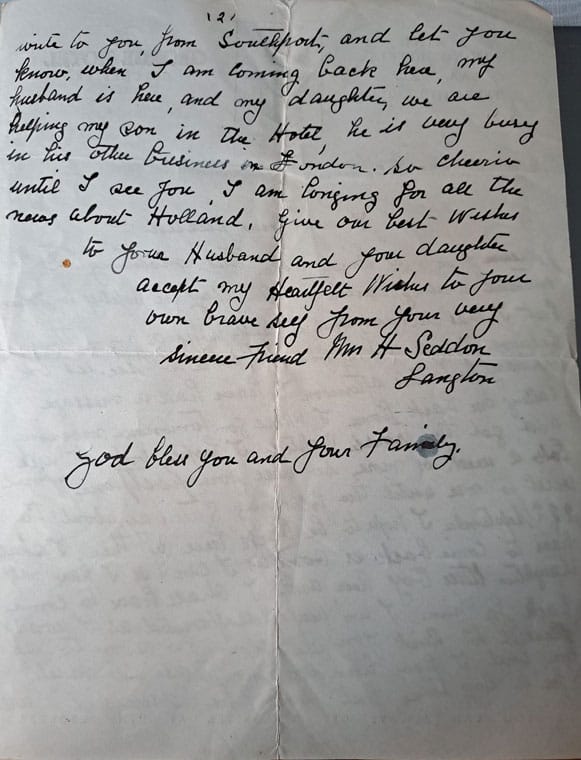 (2)
write to you, from Southport, and let you
know, when I am coming back here, my
husband is here, and my daughter, we are
helping my son in the Hotel, he is very busy
in his other business in London. so cheerio
until I see you, I am longing for all the
news about Holland, Give our best Wishes
to your Husband and your daughter
accept my Heartfelt Wishes to your
own brave self from your very
sincere Friend Mrs H Seddon
Langton
God bless you and your Family.